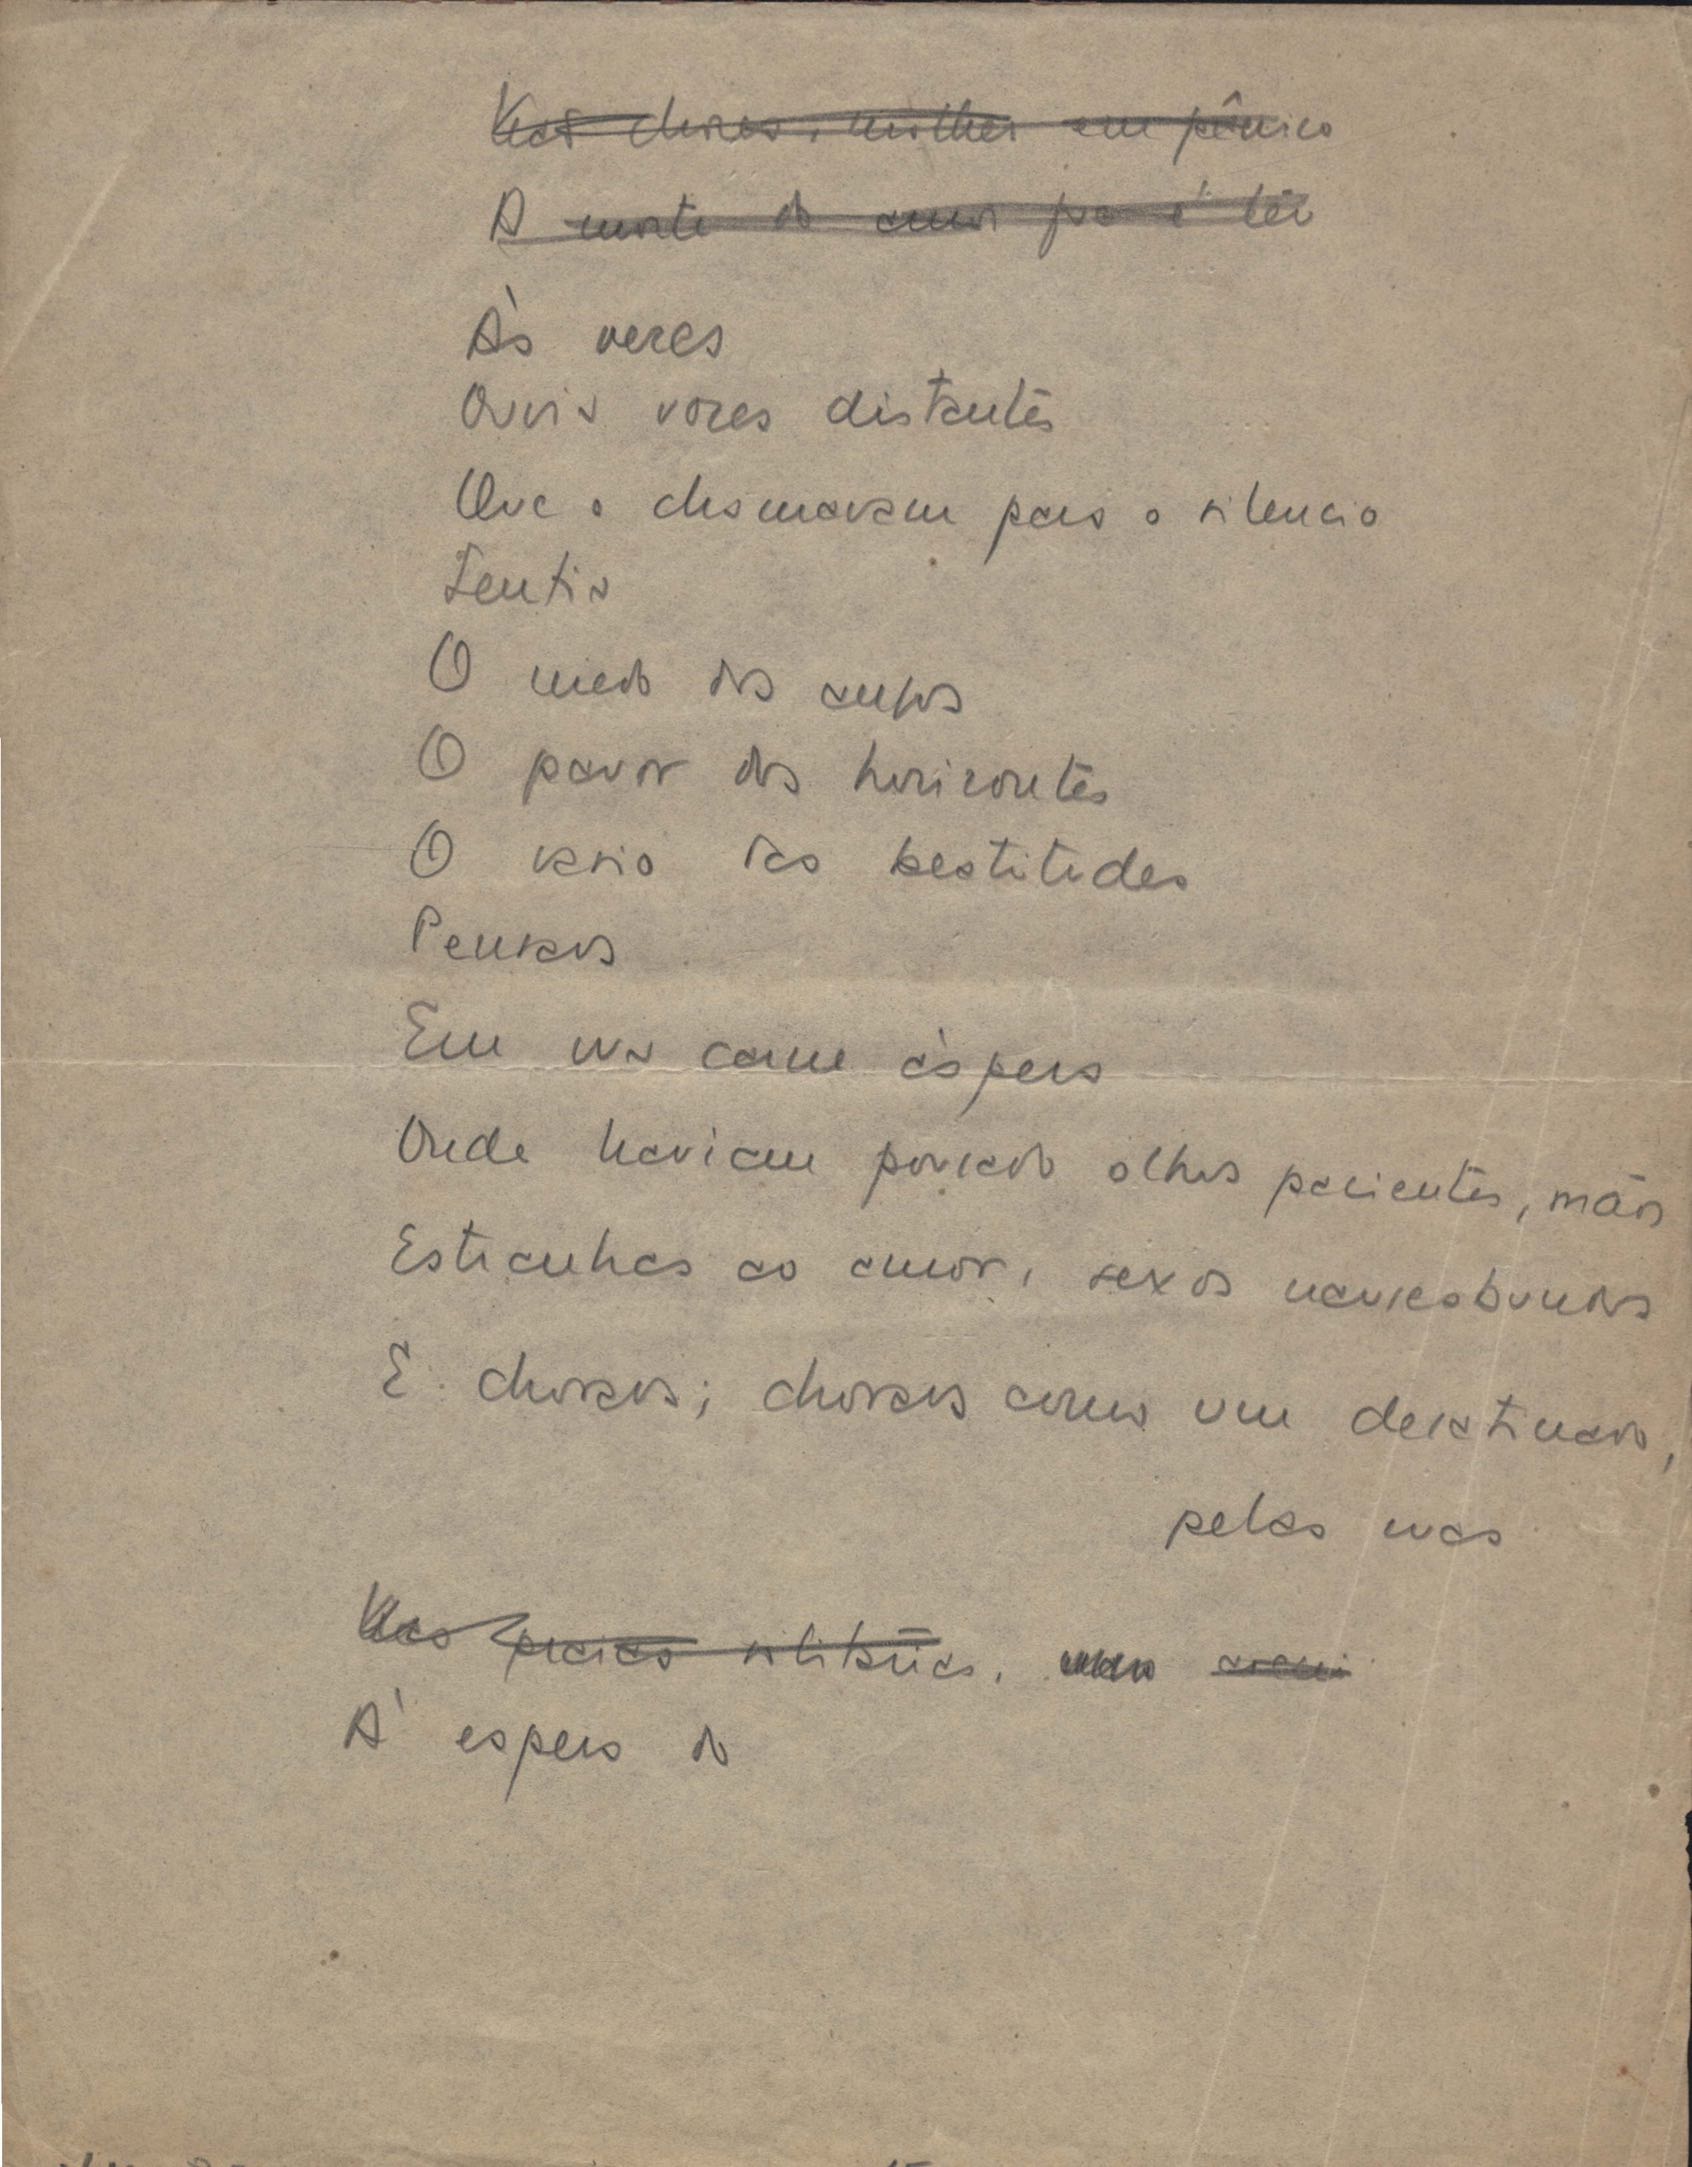 mulher em pânico
A morte do amor
Às vezes
Ouvia vozes distantes
Que o chamavam para o silencio
Sentia
O medo dos
O pavor dos horizontes
O vasio das beatitudes
Pensava
Em sua carne áspera
Onde haviam pousado olhos pacientes, mãos
Estranhas ao amor, sexos nauseabundos
E chorava; chorava como um desatinado,
pelas ruas
praias solitárias,
À espera do